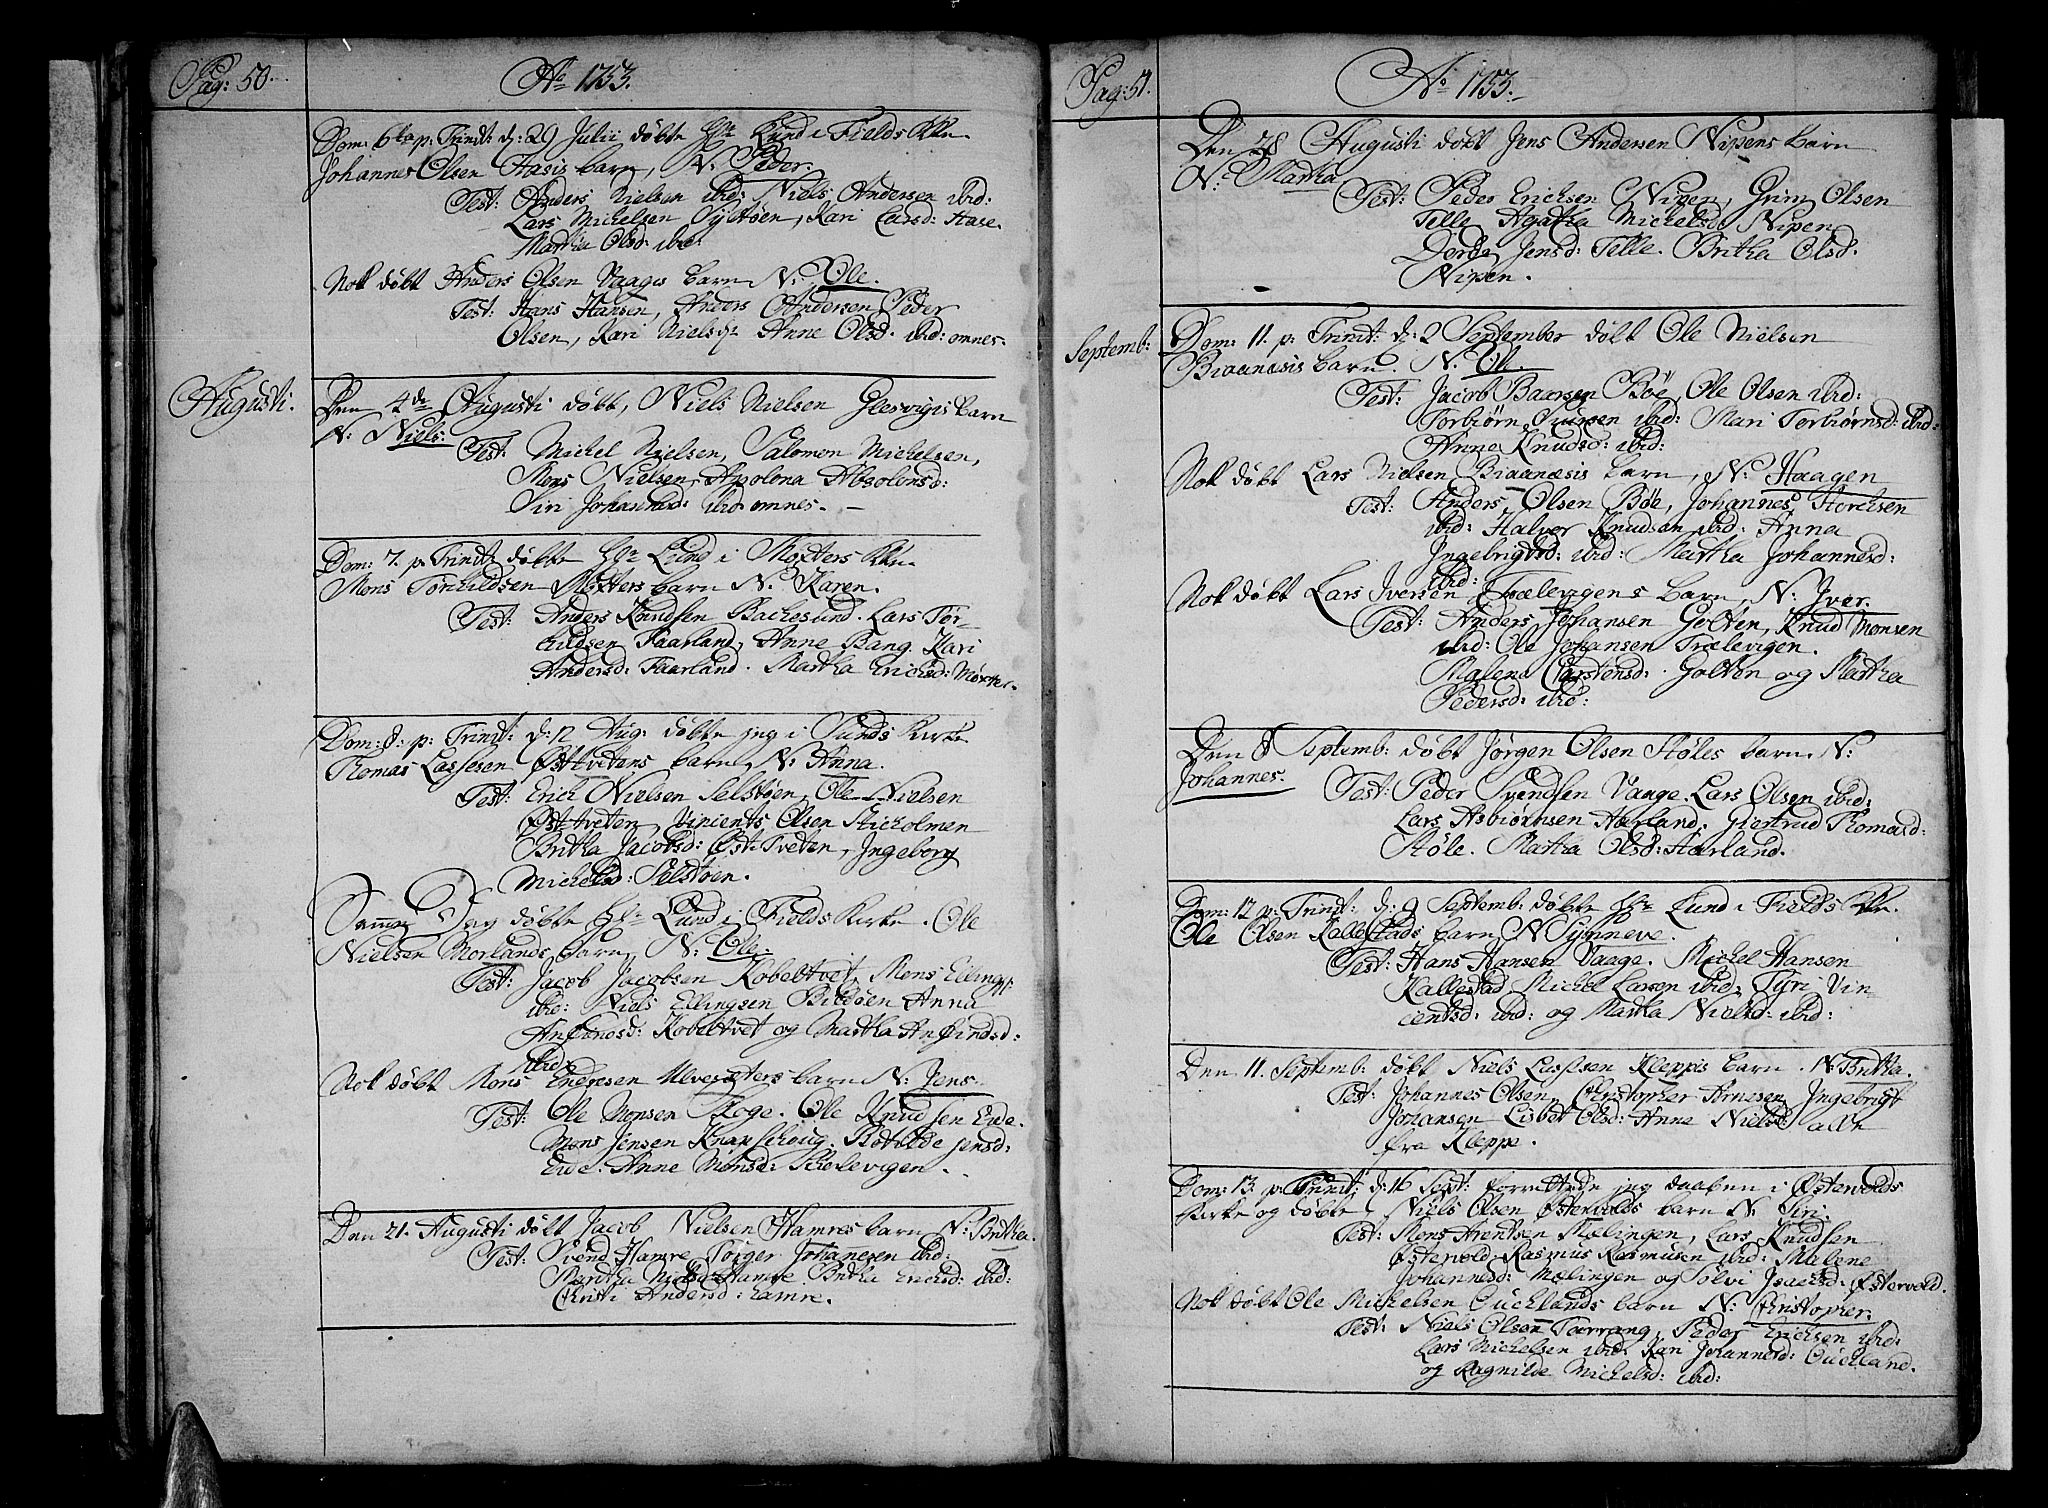 Pag: 50.
Ao 1753.
Dom: 6ta p: Trinit: d: 29 Julii døbte Hr Lund i Fields Kke
Johannes Olsen Haasis barn, N: Peder.
Test: Anders Nielsen ibid: Niels Andersen ibid:
Lars Michelsen Syltøen, Kari Larsd: Haase
Martha Olsd: ibd:
Nok døbt Anders Olsen Vaagis barn N: Ole.
Test: Hans Hansen, Anders Andersen Peder
Olsen, Kari Nielsd: Anne Olsd. ibid: omnes.
Augusti.
Den 4de Augusti døbt, Niels Nielsen Glesvigis barn
N: Niels.
Test: Michel Nielsen, Salomon Michelsen,
Mons Nielsen, Apolona Absolonsd:
Siri Johannesd: ibid: omnes.
Dom: 7. p. Trinit: døbte Hr Lund i Møxters Kke
Mons Torchildsen Møxters barn N: Karen.
Test: Anders Knudsen Bachesund. Lars Tor-
childsen Faarland, Anne Bang. Kari
Andersd: Faarland. Martha Erichsd: Møxter.
Dom: 8: p: Trinit: d: 12 Aug: døbte jeg i Sunds Kirke
Thomas Lassesen Østtvitens barn N: Anna.
Test: Erich Nielsen Selstøen, Ole Nielsen
Østtveten, Vincents Olsen Stieholmen
Britha Jacobsd: Øst-Tveten, Ingeborg
Michelsd: Selstøen.
Samme Dag døbte Hr Lund i Fields Kirke. Ole
Nielsen Morlands barn, N: Ole.
Test: Jacob Jacobsen Kobeltvet, Mons Ellings:
ibid: Niels Ellingsen Bildøen Anna
Anfindsd: Kobeltvet og Martha Anfindsd:
ibid:
Nok døbt Mons Endresen Ulvesæters barn N: Jens
Test: Ole Monsen Skoge. Ole Knudsen Eide.
Mons Jensen Knapschoug. Botilde Jensd:
Eide. Anne Monsd: Skolevigen.
Den 21. Augusti døbt Jacob Nielsen Hamres barn N: Britha.
Test: Svend Hamre, Børger Johannesen ibid:
Maritha Nielsd: Hamre Britha Erichsd: ibid:
Christi Andersd: hamre.
Pag: 51.
Ao 1753.
Den 28 Augusti døbt Jens Andersen Nipens barn
N: Martha
Test: Peder Erichsen Nipen, Grim Olsen
Telle Agatha Michelsd: Nipen
Dorde Jensd: Telle. Britha Olsd.
Nipen.
Septemb:
Dom: 11. p: Trinit: d: 2 September døbt Ole Nielsen
Biaanæsis barn. N: Ole.
Test: Jacob Baarsen Bøe, Ole Olsen ibid:
Torbiørn Siursen ibid: Mari Torbiørnsd: ibid:
Anne Knudsd: ibid:
Nok døbt Lars Nielsen Biaanæsis barn, N: Haagen
Test: Anders Olsen Bøe, Johannes
ibid: Halver Knudsen ibid: Anna
Ingebrigtsd: ibid: Martha Johannesd:
ibid:
Nok døbt Lars Iversen Trælevigens barn, N: Iver.
Test: Anders Johansen Golten, Knud Monsen
ibid: Ole Johansen Trælevigen.
Malene Carstensd: Golten og Martha
Pedersd: ibid:
Den 8 Septemb: døbt Jørgen Olsen Støles barn N:
Johannes.
Test: Peder Svendsen Vaage. Lars Olsen ibid:
Lars Asbiørnsen Haarland, Giertrud Thomasd:
Støle. Martha Olsd: Haarland.
Dom: 12 p: Trinit: d: 9 Septemb: døbte Hr Lund i Fields Kke.
Ole Olsen Kallestads barn N Synneve.
Test: Hans Hansen Vaage. Michel Hansen
Kallestad Michel Larsen ibid: Syri Vin-
centsd: ibid: og Martha Nielsd: ibid:
Den 11. Septemb: døbt Niels Lassesen Kleppis barn. N: Britha.
Test: Johannes Olsen, Christopher Arnesen, Ingebrigt
Johansen Lisbet Olsd: Anne Nielsd: alle
fra Kleppe.
Dom: 13. p: Trinit: d: 16 Sept: forrettede jeg daaben i Østervolds
Kirke og døbte Niels Olsen Østervolds barn N: Siri.
Test: Mons Arentsen Mælingen, Lars Knudsen
Østervold. Rasmus Rasmusen ibid: Malene
Johannesd: Mælingen og Sølvi Isachsd: Østervold.
Nok døbt Ole Michelsen Ouchlands barn N: Christopher.
Test: Niels Olsen Torrang, Peder Erichsen ibid:
Lars Michelsen ibid. Kari Johannesd: Ouchland.
og Ragnilde Michelsd: ibid: